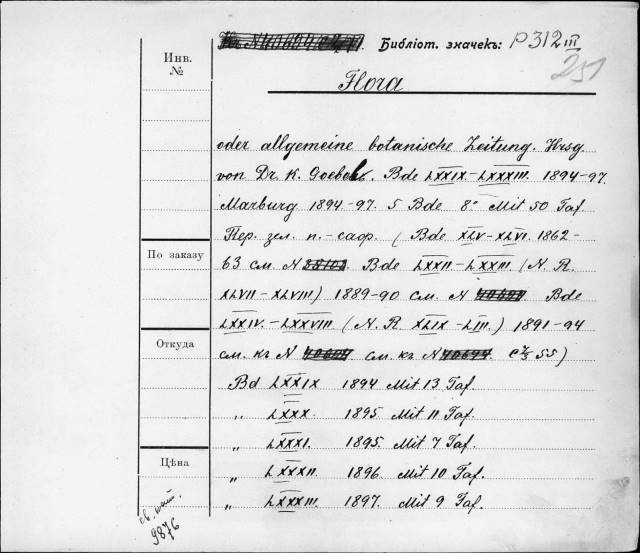 Библіот. значекъ: P 312 III
251
Инв.
№
Flora
oder allgemeine botanische Zeitung. Hrsg
von Dr. K. Goebel. Bde LXXIX-LXXXIII. 1894-97.
Marburg 1894-97. 5 Bde 8° Mit 50 Taf
Пер. зел. п.-саф. ( Bde XLV-XLVI. 1862-
По заказу
63 см. N 38102 Bde LXXII-LXXIII. (N. R.
XLVII-XLVIII) 1889-90 см. N Bde
LXXIV.-LXXVIII. (N. R. XLIX-LIII.) 1891-94
Откуда
см. къ N см. къ N 55)
Bd LXXIX 1894 Mit 13 Taf.
„ LXXX. 1895. Mit 11 Taf.
„ LXXXI. 1895. Mit 7 Taf.
Цѣна
„ LXXXII. 1896. Mit 10 Taf.
„ LXXXIII. 1897. Mit 9 Taf.
9876